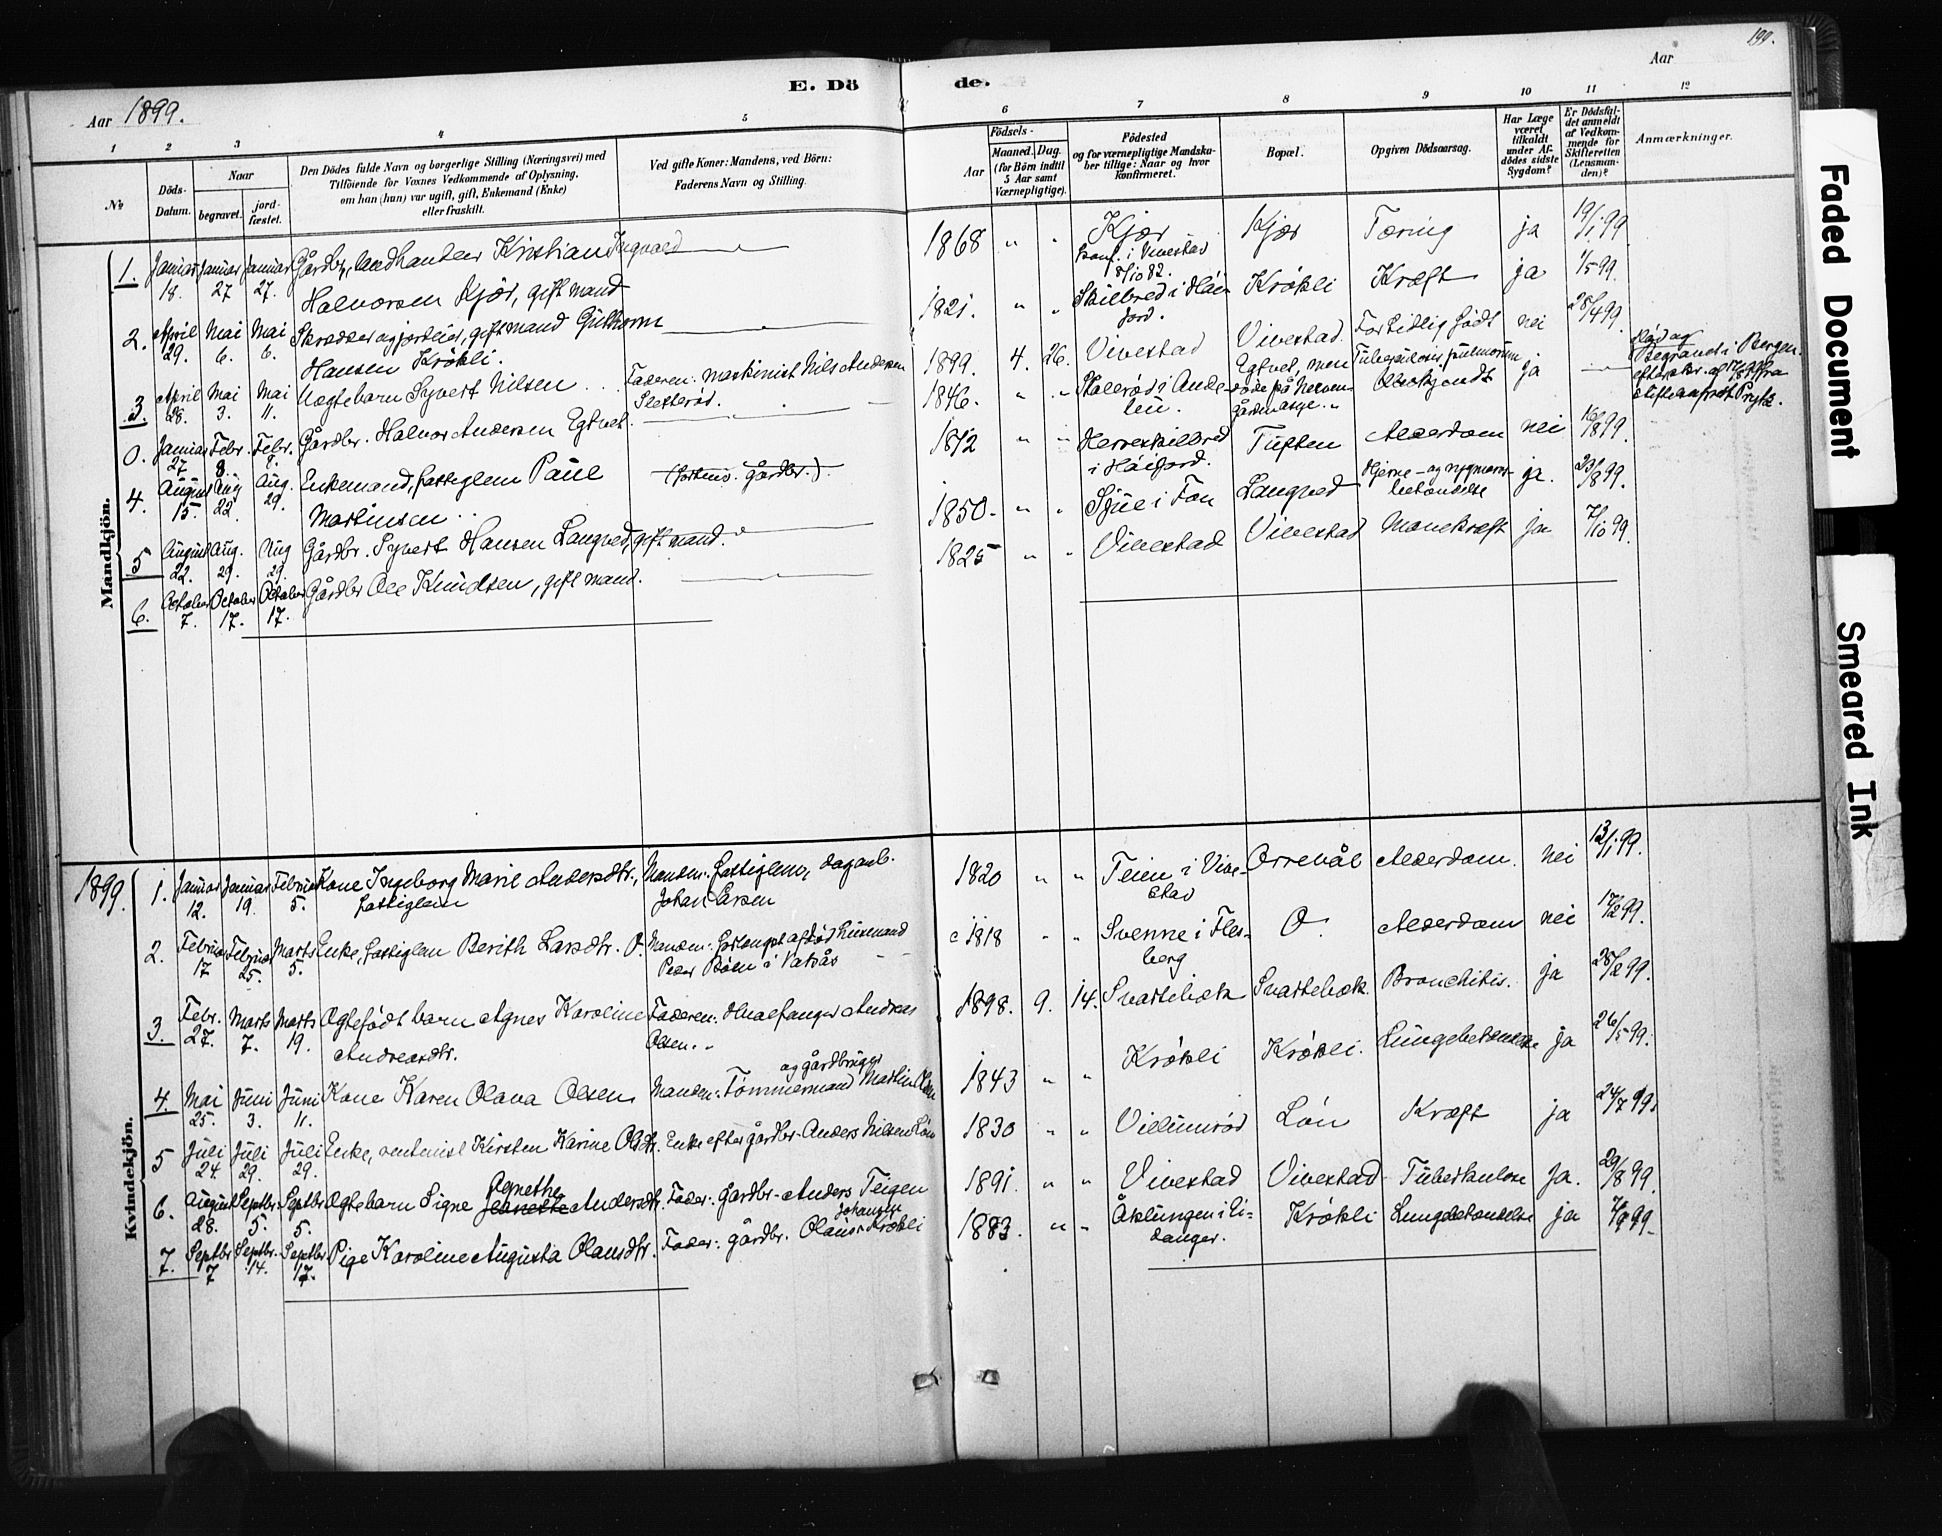 199.
Aar 1899.
E. Dö
de.
Aar
1 2 3 4 5 6 7 8 9 10 11 12
№
Döds-
Datum.
Naar
begravet.
jord-
fæstet.
Den Dödes fulde Navn og borgerlige Stilling (Næringsvei) med
Tilföiende for Voxnes Vedkommende af Oplysning,
om han (hun) var ugift, gift, Enkemand (Enke)
eller fraskilt.
Ved gifte Koner: Mandens, ved Börn:
Faderens Navn og Stilling.
Födsels-
Aar
Maaned. Dag.
(for Börn indtil
5 Aar samt
Værnepligtige).
Födested
og for værnepligtige Mandska-
ber tillige: Naar og hvor
konfirmeret.
Bopæl.
Opgiven Dödsaarsag.
Har Læge
været
tilkaldt
under Af-
dödes sidste
Sygdom?
Er Dödsfal-
det anmeldt
af Vedkom-
mende for
Skifteretten
(Lensman-
den)?
Anmærkninger.
Mandkjön.
1. Januar 18. Januar 27 Januar 27. Gårdbr, landhandler Kristian Ingvald
Halvorsen Kjær, gift mand
1868 " " Kjær
konf. i Vivestad
8/10 82.
Kjær Tæring ja 19/1 99
2. April 29. Mai 6. Mai 6. Skrædder og jordeier, gift mand Guttorm
Hansen Krökli.
1821. " " Skilbred i Höi-
jord.
Krökli Kræft ja 1/5 99.
3 April 28. Mai 3. Mai 11. Uægte barn Syvert Nilsen
Faderen: Maskinist Nils Andersen
Sletterød.
1899. 4. 26. Vivestad Vivestad. For tidlig födt nei 28/4 99.
0. Januar 27 Febr. 8. Febr. 8. Gårdbr. Halvor Andersen Egtvet.
1846. " " Stalerød i Ande-
bu.
Egtvet, men
döde på Neven-
gården asyl.
Tuberculosis pulmonum
ja
Begravet i Bergen
4. August 15. Aug 22. Aug. 29. Enkemand, fattiglem Paul
Martinsen
(fortids. Gårdbr.)
1812 " " Herreskilbred
i Höijord.
Tuften Alderdom nei 16/8 99.
5 August 22. Aug. 29. Aug 29. Gårdbr. Syvert Hansen Langved, gift mand.
1850. " " Sjue i Fon Langved Hjerne- og rygmarvs-
betændelse
ja. 23/8 99.
6. October 7. October 17. October 17. Gårdbr Ole Knudsen, gift mand.
1825 " " Vivestad Vivestad Mavekræft ja 7/10 99.
Kvindekjön.
1899.
1. Januar 12. Januar 19. Februar 5. Kone Ingeborg Marie Andersdtr.,
fattiglem
Manden: fattiglem, dagarb.
Johan Larsen
1820 " " Teien i Vive-
stad
Orrevål Alderdom. nei 13/1 99.
2. Februar 17 Februar 25. Marts 5. Enke, fattiglem Berith Larsdtr. O.
Manden: forlængst afdöd husmand
Peder Bøen i Vatnås
c 1818 " " Svenne i Fles-
berg
O. Alderdom nei 17/2 99.
3. Febr. 27. Marts 7. Marts 19. Ægtefödt barn Agnes Karoline
Andreasdtr.
Faderen: Hvalfanger Andreas
Olsen.
1898. 9. 14. Svartebæk Svartebæk. Bronchitis. ja 28/2 99.
4. Mai 25. Juni 3. Juni 11. Kone Karen Olava Olsen
og gårdbruger
Manden: Tømmermand Martin Olsen
1843 " " Krökli Krökli. Lungebetændelse ja 26/5 99.
5 Juli 24. Juli 29. Juli 29. Enke, rentenist Kirsten Karine Olsdtr.
Enke efter gårdbr. Anders Nilsen Lön
1830 " " Villumröd Lön Kræft ja 24/7 99.
6. August 28. Septbr. 5. Septbr 5. Ægtebarn Signe Jeanette Andersdtr.
Agnethe
Fader: Gårdbr. Anders Teigen
1891. " " Vivestad Vivestad Tuberkulose Ja. 29/8 99.
7. Septbr 7 Septbr 14. Septbr 17. Pige Karoline Augusta Olausdtr.
Johansen
Fader: gårdbr. Olaus Krökli
1883. " " Åklungen i Ei-
danger.
Krökli Lungebetændelse ja 7/9 99.
Faded Document
Smeared Ink